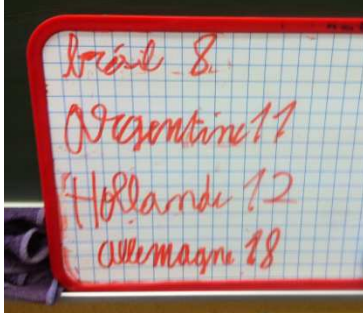 brésil 8
Argentine 11
Hollande 12
allemagne 18